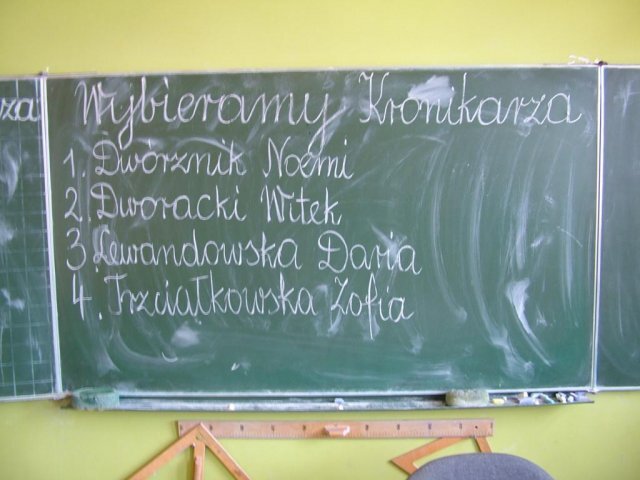 za
Wybieramy Kronikarza
1. Dwórznik Noemi
2. Dworacki Witek
3. Lewandowska Daria
4. Trzciałkowska Zofia